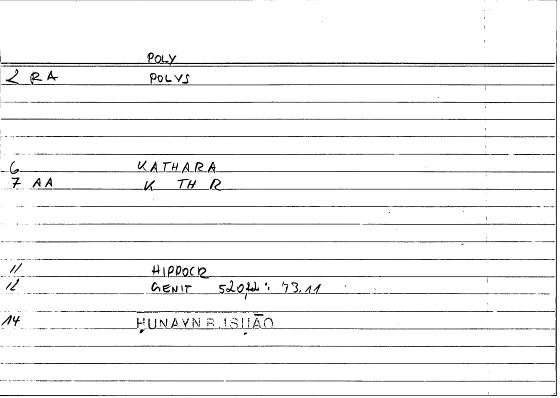 POLY
2 RA POLVS
6 KATHARA
7 AA K TH R
11 HIPPOCR
12 GENIT 520,22: 73.11
14 ḤUNAYN B. ISḤĀQ